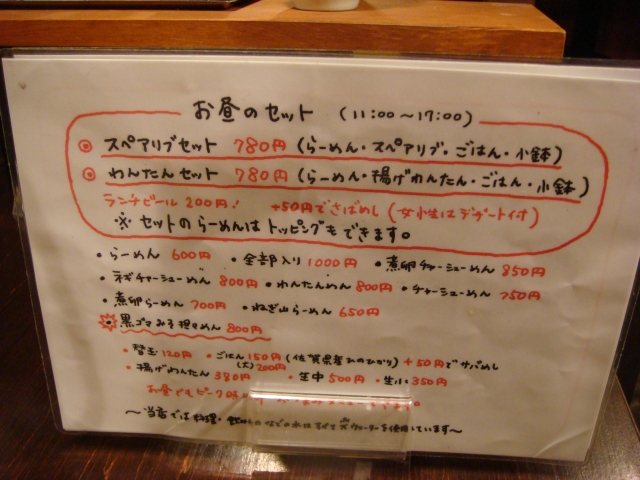 お昼のセット (11:00～17:00)
◎ スペアリブセット 780円 (らーめん・スペアリブ・ごはん・小鉢)
◎ わんたんセット 780円 (らーめん・揚げわんたん・ごはん・小鉢)
ランチビール 200円! +50円でさばめし (女性はデザート付)
※ セットのらーめんはトッピングもできます。
・らーめん 600円 ・全部入り 1000円 ・煮卵チャーシューめん 850円
・ネギチャーシューめん 800円 ・わんたんめん 800円 ・チャーシューめん 750円
・煮卵らーめん 700円 ・ねぎ山らーめん 650円
黒ゴマみそ担々めん 800円
・替玉 120円 ・ごはん 150円 (佐賀県産ひのひかり) +50円でサバめし
(大) 200円
・揚げわんたん 380円 ・生中 500円 ・生小 350円
お昼でもビーフ
～当店では料理・などの水はすべてウォーターを使用しています～